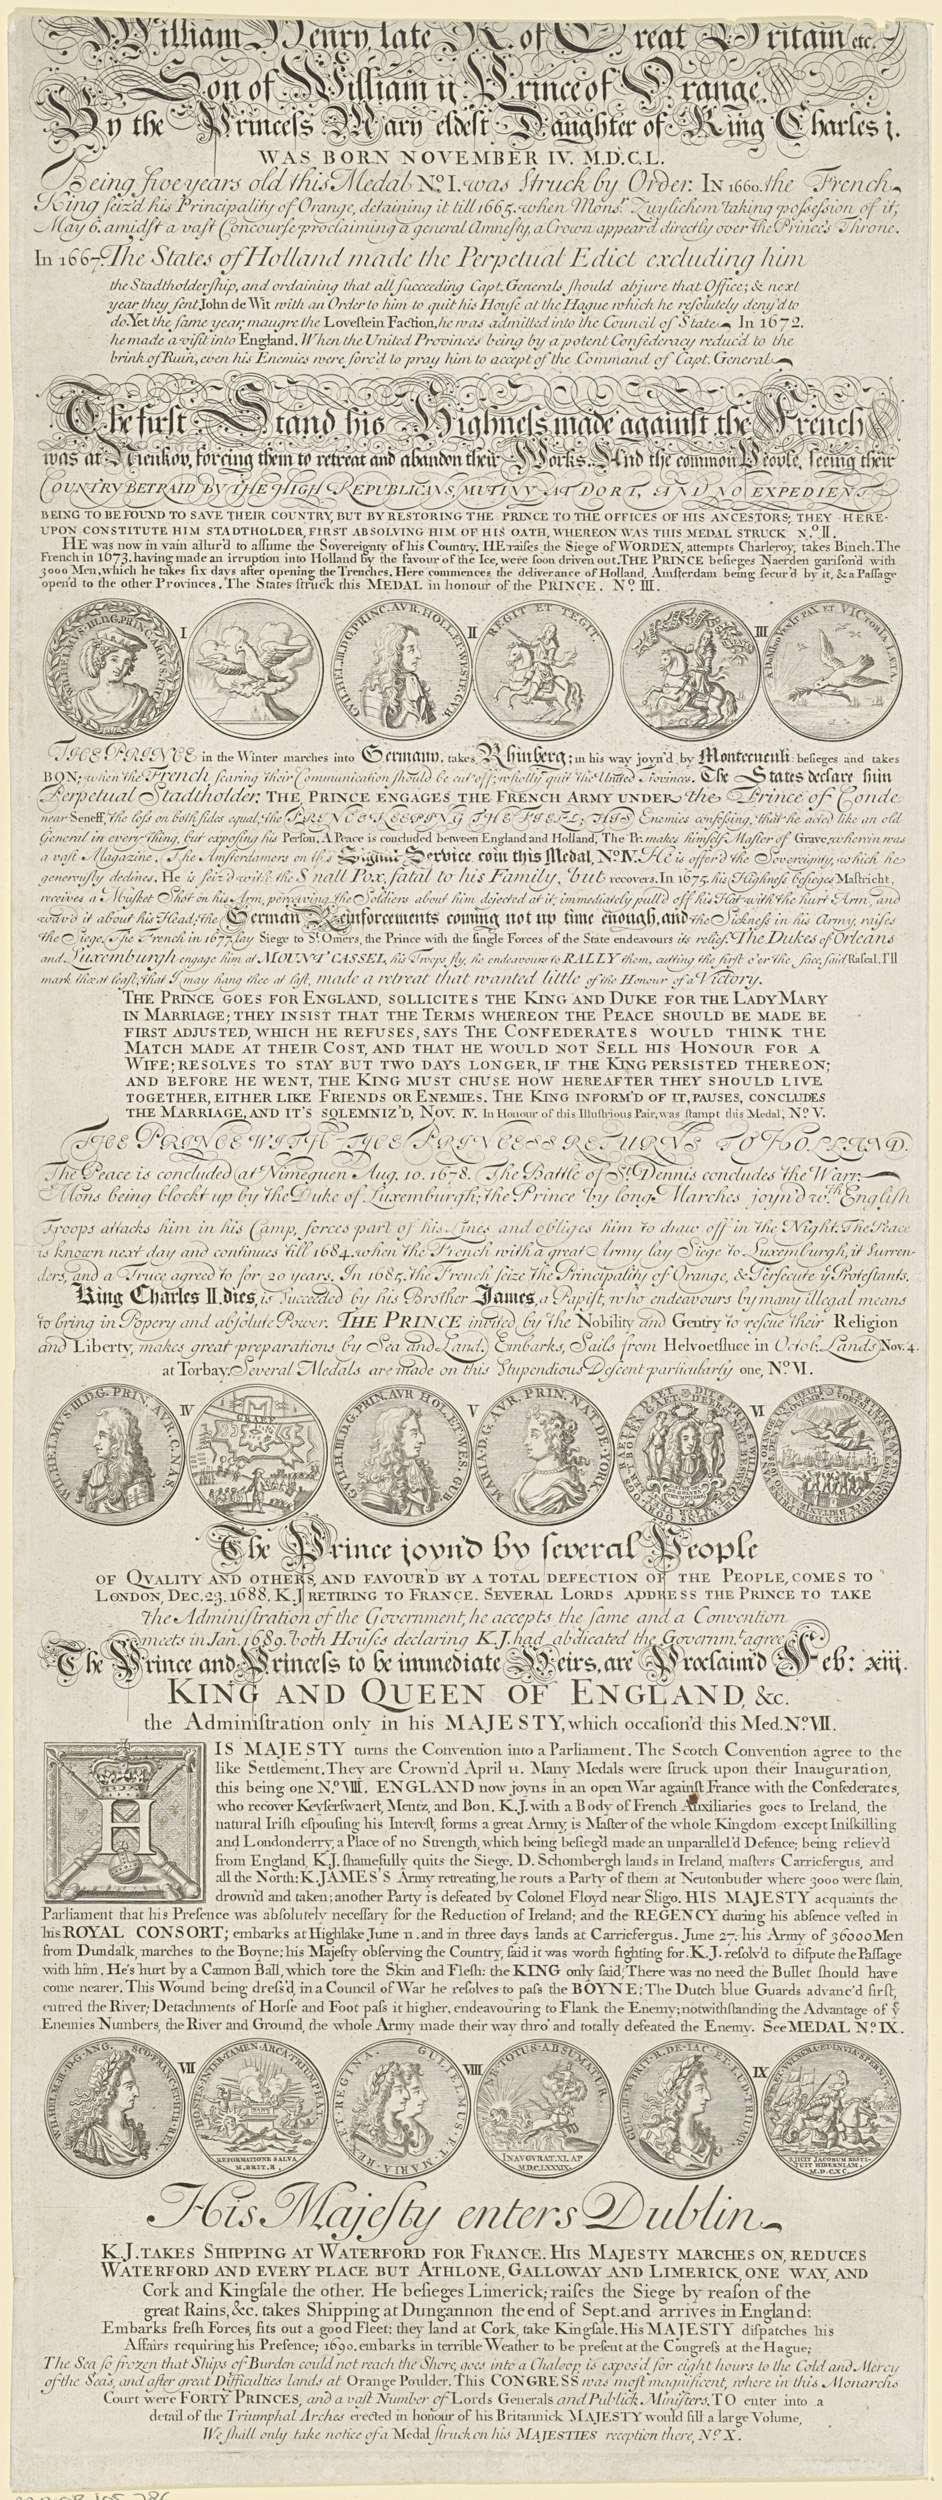 William Henry, late K. of Great Britain etc.
Son of William ij Prince of Orange,
By the Princess Mary eldest Daughter of King Charles j.
WAS BORN NOVEMBER IV. M.D.C.L.
Being five years old this Medal No. I. was Struck by Order. In 1660. the French
King seiz'd his Principality of Orange, detaining it till 1665. when Monsr. Zuylichem taking possession of it;
May 6. amidst a vast Concourse proclaiming a general Amnesty, a Crown appear'd directly over the Prince's Throne.
In 1667. The States of Holland made the Perpetual Edict excluding him
the Stadtholdership, and ordaining that all succeeding Capt. Generals should abjure that Office; & next
year they sent John de Wit with an Order to him to quit his House at the Hague which he resolutely deny'd to
do. Yet the same year, maugre the Lovestein Faction, he was admitted into the Council of State. In 1672.
he made a visit into England. When the United Provinces being by a potent Confederacy reduc'd to the
brink of Ruin, even his Enemies were forc'd to pray him to accept of the Command of Capt. General.
The first Stand his Highness made against the French
was at Nienkop, forcing them to retreat and abandon their Works. And the common People, seeing their
COUNTRY BETRAID BY THE HIGH REPUBLICANS, MUTINY AT DORT, AND NO EXPEDIENT
BEING TO BE FOUND TO SAVE THEIR COUNTRY, BUT BY RESTORING THE PRINCE TO THE OFFICES OF HIS ANCESTORS; THEY HERE-
UPON CONSTITUTE HIM STADTHOLDER, FIRST ABSOLVING HIM OF HIS OATH, WHEREON WAS THIS MEDAL STRUCK No. II.
HE was now in vain allur'd to assume the Sovereignty of his Country. HE raises the Siege of WORDEN, attempts Charleroy, takes Binch. The
French in 1673. having made an irruption into Holland by the favour of the Ice, were soon driven out. THE PRINCE besieges Naerden garison'd with
3000 Men, which he takes six days after opening the Trenches. Here commences the deliverance of Holland, Amsterdam being secur'd by it, & a Passage
open'd to the other Provinces. The States struck this MEDAL in honour of the PRINCE. No. III.
I II III
WILHELMVS. III. D. G. PRINC.
GVLIEL. III. D. G. PRINC. AVR. HOLL. ET WESTF. GVB.
REGIT ET TEGIT.
PAX ET VICTORIA LÆTA.
THE PRINCE in the Winter marches into Germany, takes Rhinberg; in his way joyn'd by Montecuculi: besieges and takes
BON; when the French fearing their Communication should be cut off; wholly quit the United Provinces. The States declare him
Perpetual Stadtholder. THE PRINCE ENGAGES THE FRENCH ARMY UNDER the Prince of Conde
near Seneff, the loss on both sides equal, the PRINCE KEEPING THE FIELD; HIS Enemies confessing, that he acted like an old
General in every thing, but exposing his Person. A Peace is concluded between England and Holland, The Pr. makes himself Master of Grave, wherein was
a vast Magazine. The Amsterdamers on this Signal Service coin this Medal, No. IV. He is offer'd the Sovereignty, which he
generously declines. He is seiz'd with the Small Pox, fatal to his Family, but recovers. In 1675. his Highness besieges Mastricht,
receives a Musket Shot on his Arm, perceiving the Soldiers about him dejected at it, immediately pull'd off his Hat with the hurt Arm, and
wav'd it about his Head, the German Reinforcements coming not up time enough, and the Sickness in his Army, raises
the Siege. The French in 1677. lay Siege to St. Omers, the Prince with the single Forces of the State endeavours its relief. The Dukes of Orleans
and Luxemburgh engage him at MOUNT CASSEL, his Troops fly, he endeavours to RALLY them, cutting the first o'er the face, said Rascal, I'll
mark thee at least, that I may hang thee at last, made a retreat that wanted little of the Honour of a Victory.
THE PRINCE GOES FOR ENGLAND, SOLLICITES THE KING AND DUKE FOR THE LADY MARY
IN MARRIAGE; THEY INSIST THAT THE TERMS WHEREON THE PEACE SHOULD BE MADE BE
FIRST ADJUSTED, WHICH HE REFUSES, SAYS THE CONFEDERATES WOULD THINK THE
MATCH MADE AT THEIR COST, AND THAT HE WOULD NOT SELL HIS HONOUR FOR A
WIFE; RESOLVES TO STAY BUT TWO DAYS LONGER, IF THE KING PERSISTED THEREON;
AND BEFORE HE WENT, THE KING MUST CHUSE HOW HEREAFTER THEY SHOULD LIVE
TOGETHER, EITHER LIKE FRIENDS OR ENEMIES. THE KING INFORM'D OF IT, PAUSES, CONCLUDES
THE MARRIAGE, AND IT'S SOLEMNIZ'D, NOV. IV. In Honour of this Illustrious Pair, was stampt this Medal, No. V.
THE PRINCE WITH THE PRINCESS RETURNS TO HOLLAND.
The Peace is concluded at Nimeguen Aug. 10. 1678. The Battle of St. Dennis concludes the Warr.
Mons being blockt up by the Duke of Luxemburgh; the Prince by long Marches joyn'd wth. English
Troops attacks him in his Camp, forces part of his Lines and obliges him to draw off in the Night. The Peace
is known next day and continues till 1684. when the French with a great Army lay Siege to Luxemburgh, it Surren-
ders, and a Truce agreed to for 20 years. In 1685. the French seize the Principality of Orange, & Persecute ye Protestants.
King Charles II. dies, is succeeded by his Brother James, a Papist, who endeavours by many illegal means
to bring in Popery and absolute Power. THE PRINCE invited by the Nobility and Gentry to rescue their Religion
and Liberty, makes great preparations by Sea and Land. Embarks, Sails from Helvoetsluce in Octob. Lands Nov. 4.
at Torbay. Several Medals are made on this Stupendious Descent particularly one, No. VI.
IV V VI
WILHELMVS III. D. G. PRIN. AVR. C. NAS.
GRAEF
GVILH. III. D. G. PRIN. AVR HOL. ET. WES. GVB.
MARIA. D. G. AVR. PRIN. NAT. DE. YORK.
The Prince joyn'd by several People
OF QVALITY AND OTHERS, AND FAVOUR'D BY A TOTAL DEFECTION OF THE PEOPLE, COMES TO
LONDON, DEC. 23. 1688. K. J. RETIRING TO FRANCE. SEVERAL LORDS ADDRESS THE PRINCE TO TAKE
the Administration of the Government, he accepts the same and a Convention
meets in Jan. 1689. both Houses declaring K. J. had abdicated the Governmt. agree
The Prince and Princess to be immediate Heirs, are Proclaim'd Feb: xiij.
KING AND QUEEN OF ENGLAND, &c.
the Administration only in his MAJESTY, which occasion'd this Med. No. VII.
HIS MAJESTY turns the Convention into a Parliament. The Scotch Convention agree to the
like Settlement. They are Crown'd April 11. Many Medals were struck upon their Inauguration,
this being one No. VIII. ENGLAND now joyns in an open War against France with the Confederates,
who recover Keyserswaert, Mentz, and Bon. K. J. with a Body of French Auxiliaries goes to Ireland, the
natural Irish espousing his Interest, forms a great Army, is Master of the whole Kingdom except Iniskilling
and Londonderry, a Place of no Strength, which being besieg'd made an unparallel'd Defence; being reliev'd
from England, K. J. shamefully quits the Siege. D. Schombergh lands in Ireland, masters Carricfergus, and
all the North: K. JAMES'S Army retreating, he routs a Party of them at Neutonbutler where 3000 were slain,
drown'd and taken; another Party is defeated by Colonel Floyd near Sligo. HIS MAJESTY acquaints the
Parliament that his Presence was absolutely necessary for the Reduction of Ireland; and the REGENCY during his absence vested in
his ROYAL CONSORT; embarks at Highlake June 11. and in three days lands at Carricfergus. June 27. his Army of 36000 Men
from Dundalk, marches to the Boyne; his Majesty observing the Country, said it was worth fighting for. K. J. resolv'd to dispute the Passage
with him. He's hurt by a Cannon Ball, which tore the Skin and Flesh: the KING only said; There was no need the Bullet should have
come nearer. This Wound being dress'd, in a Council of War he resolves to pass the BOYNE; The Dutch blue Guards advanc'd first,
entred the River; Detachments of Horse and Foot pass it higher, endeavouring to Flank the Enemy; notwithstanding the Advantage of ye
Enemies Numbers, the River and Ground, the whole Army made their way thro' and totally defeated the Enemy. See MEDAL No. IX.
VII VIII IX
WILHELM. III. D. G. ANG. SCO. FRANC. ET HIB. REX.
INTER. TAMEN. ARCA. TRIUMPHAT.
REFORMATIONE SALVA
M. BRIT. R.
GULIELMUS. ET. MARIA. REX. ET. REGINA.
NE TOTUS ABSUMATUR.
INAVGVRAT. XI. AP
MDCLXXXIX.
GUIL. III. M. BRIT. R. DE. IAC. ET. LUD. TRIUMP.
ET VULNERA ET INVIA SPERNIT
EIICIT JACOBUM RESTI-
TUIT HIBERNIAM.
M.D.C.XC.
His Majesty enters Dublin
K. J. TAKES SHIPPING AT WATERFORD FOR FRANCE. HIS MAJESTY MARCHES ON, REDUCES
WATERFORD AND EVERY PLACE BUT ATHLONE, GALLOWAY AND LIMERICK, ONE WAY, AND
Cork and Kingsale the other. He besieges Limerick; raises the Siege by reason of the
great Rains, &c. takes Shipping at Dungannon the end of Sept. and arrives in England:
Embarks fresh Forces, fits out a good Fleet: they land at Cork, take Kingsale. His MAJESTY dispatches his
Affairs requiring his Presence; 1690. embarks in terrible Weather to be present at the Congress at the Hague;
The Sea so frozen that Ships of Burden could not reach the Shore, goes into a Chaloop is expos'd for eight hours to the Cold and Mercy
of the Seas, and after great Difficulties lands at Orange Poulder. This CONGRESS was most magnificent, where in this Monarchs
Court were FORTY PRINCES, and a vast Number of Lords Generals and Publick Ministers. TO enter into a
detail of the Triumphal Arches erected in honour of his Britannick MAJESTY would fill a large Volume,
We shall only take notice of a Medal struck on his MAJESTIES reception there, No. X.